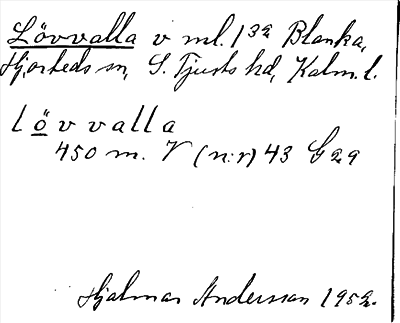 Lövvalla v ml. 1 32 Blanka,
Hjorteds sn, S. Tjusts hd, Kalm. l.
lövvalla
450 m. V (n:r) 43 G 29
Hjalmar Andersson 1952.